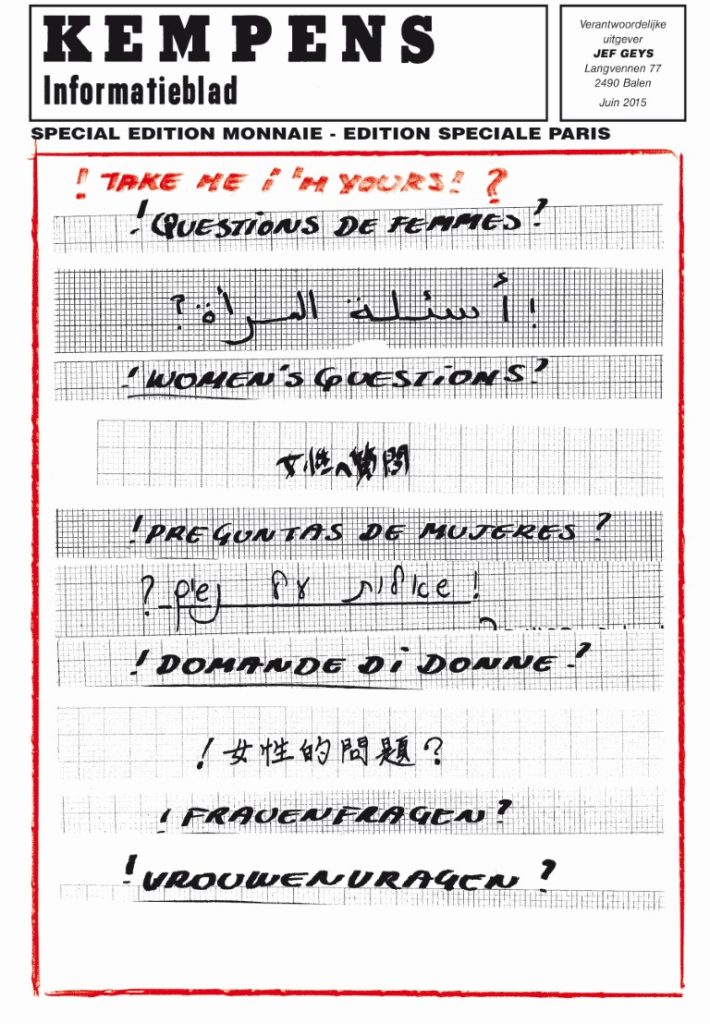 KEMPENS
Informatieblad
Verantwoordelijke
uitgever
JEF GEYS
Langvennen 77
2490 Balen
Juin 2015
SPECIAL EDITION MONNAIE - EDITION SPECIALE PARIS
! TAKE ME i 'M YOURS! ?
! QUESTiONS DE FEMMES?
! أسئلة المرأة ?
! WOMEN'S QUESTiONS?
女性へ質問
! PREGUNTAS DE MUJERES ?
! שאלות של נשים ?
! DOMANDE Di DONNE ?
! 女性的問題 ?
! FRAUENFRAGEN ?
! VROUWENVRAGEN ?